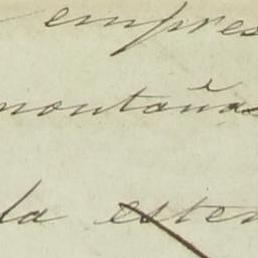 empres
montañas
la esten